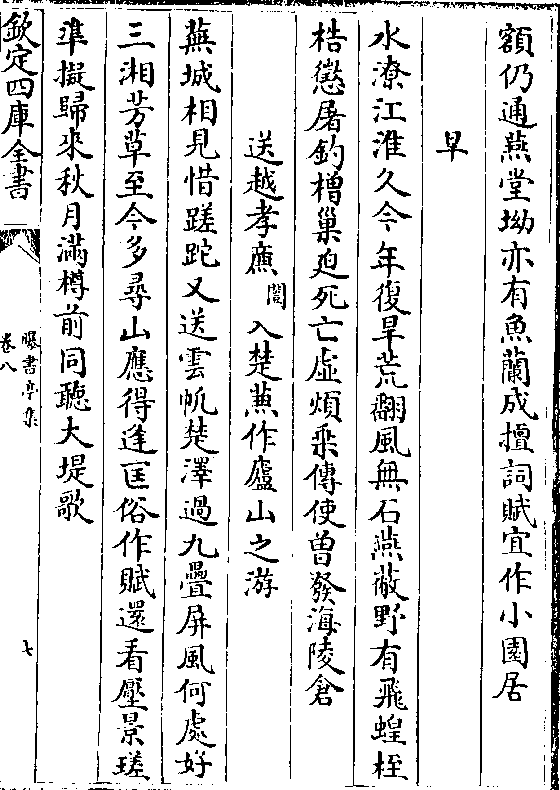 額仍通燕堂坳亦有魚蘭成擅詞賦宜作小園居
旱
水潦江淮久今年復旱荒翻風無石燕蔽野有飛蝗桎
梏懲屠釣橧巢迫死亡虛煩乘傳使曽發海陵倉
送越孝廉闓入楚兼作廬山之游
蕪城相見惜蹉跎又送雲帆楚澤過九疊屏風何處好
三湘芳草至今多尋山應得逢匡俗作賦還看壓景瑳
準擬歸來秋月滿樽前同聽大堤歌
欽定四庫全書
曝書亭集
卷八
七